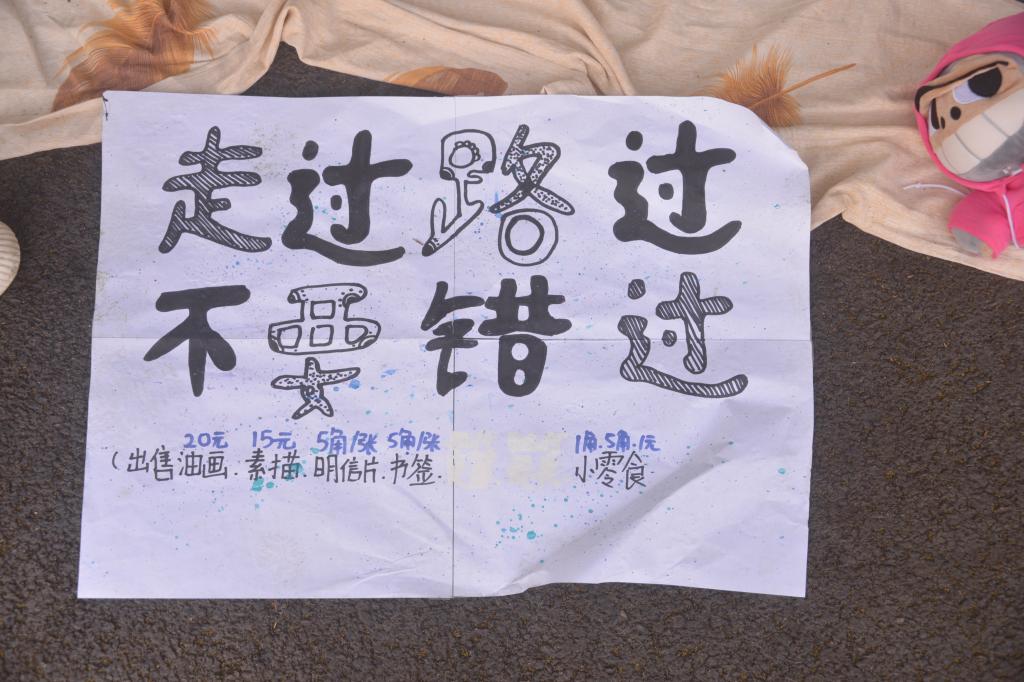 走过路过
不要错过
20元 15元 5角/张 5角/张 1角.5角.1元
(出售油画.素描.明信片.书签. 小零食